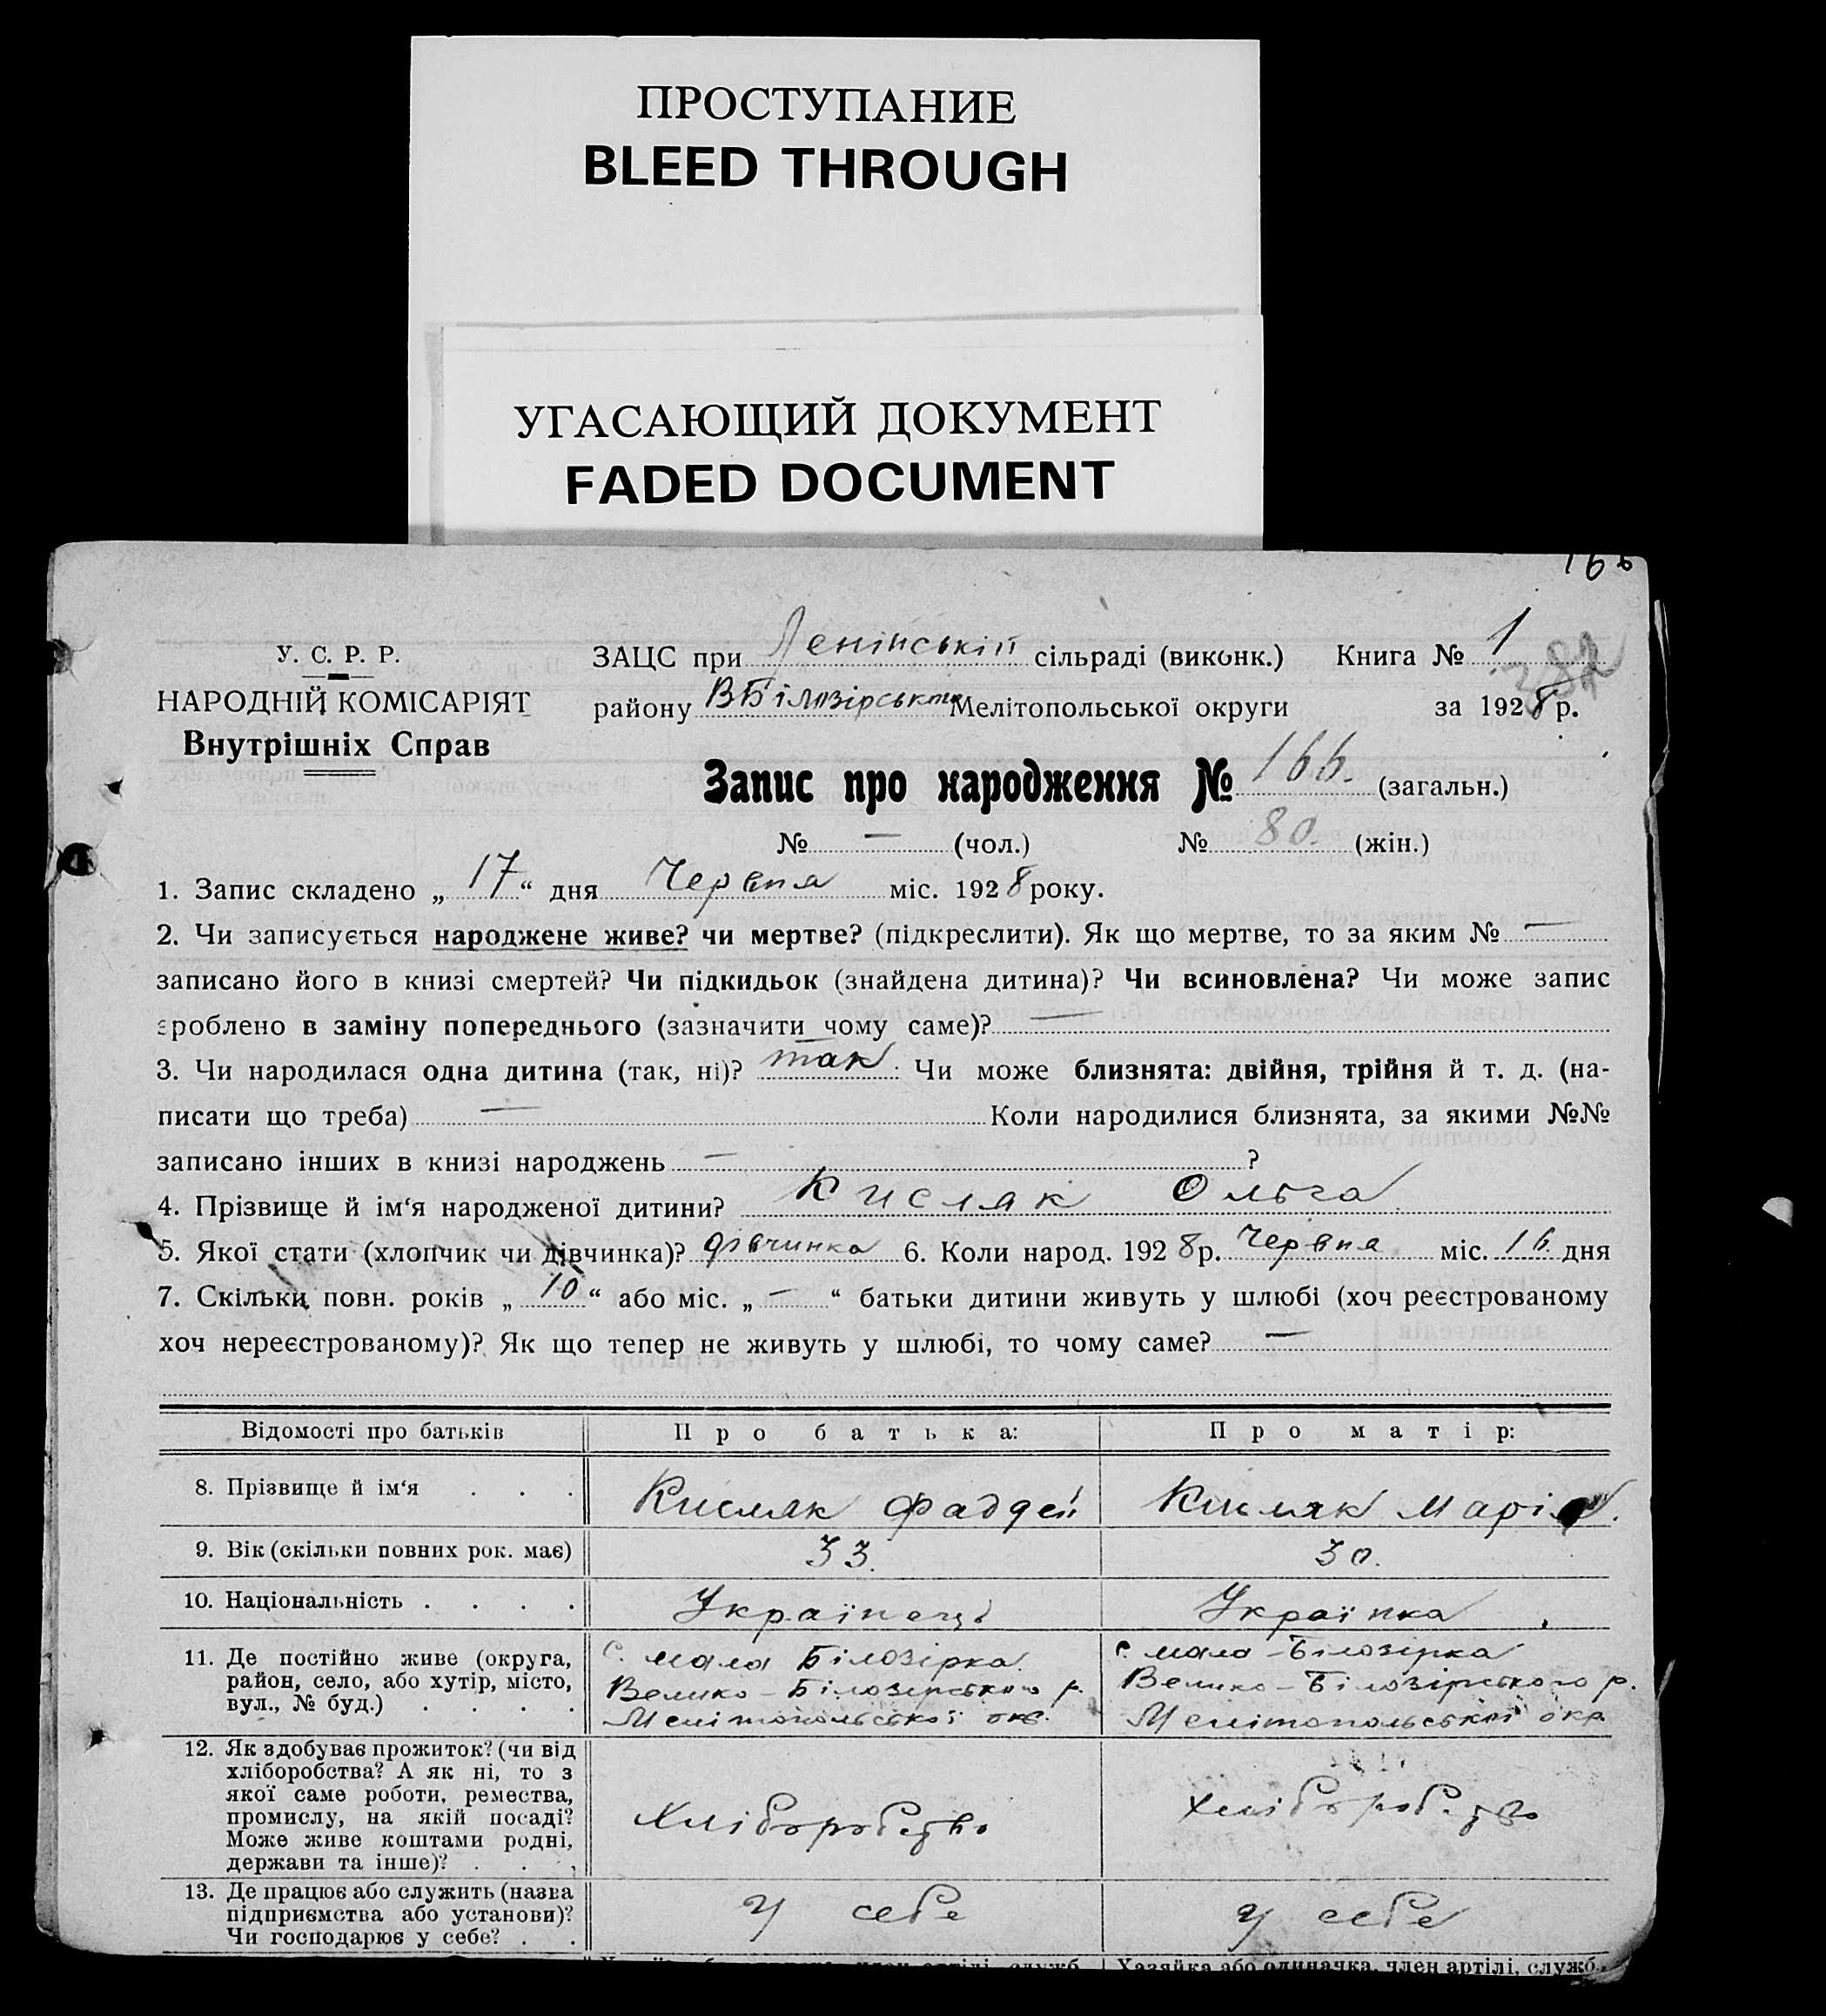 ПРОСТУПАНИЕ
BLEED THROUGH
УГАСАЮЩИЙ ДОКУМЕНТ
FADED DOCUMENT
У. С. Р. Р.
НАРОДНІЙ КОМІСАРІЯТ
Внутрішніх Справ
ЗАЦС при Ленінській сільраді (виконк.) Книга № 1
району ВБілозірськ Мелітопольської округи за 1928 р.
Запис про народження № 166. (загальн.)
№ — (чол.) № 80. (жін.)
1. Запис складено „ 17 “ дня Червня міс. 1928 року.
2. Чи записується народжене живе? чи мертве? (підкреслити). Як що мертве, то за яким № —
записано його в книзі смертей? Чи підкидьок (знайдена дитина)? Чи всиновлена? Чи може запис
зроблено в заміну попереднього (зазначити чому саме)? —
3. Чи народилася одна дитина (так, ні)? так Чи може близнята: двійня, трійня й т. д. (на-
писати що треба) — Коли народилися близнята, за якими №№
записано інших в книзі народжень — ?
4. Прізвище й ім‘я народженої дитини? Кисляк Ольга
5. Якої стати (хлопчик чи дівчинка)? дівчинка 6. Коли народ. 1928 р. Червня міс. 16 дня
7. Скільки повн. років „ 10 “ або міс. „ — “ батьки дитини живуть у шлюбі (хоч реєстрованому
хоч нереєстрованому)? Як що тепер не живуть у шлюбі, то чому саме? —
Відомості про батьків Про батька: Про матір:
8. Прізвище й ім‘я . . . Кисляк Фаддей Кисляк Марія.
9. Вік (скільки повних рок. має) 33. 30.
10. Національність . . . . Українець Українка
11. Де постійно живе (округа,
район, село, або хутір, місто,
вул., № буд.) . . . .
с. мала Білозірка.
Велико-Білозірського р.
Мелітопольської окр.
с. мала-Білозірка
Велико-Білозірського р.
Мелітопольської окр
12. Як здобуває прожиток? (чи від
хліборобства? А як ні, то з
якої саме роботи, ремества,
промислу, на якій посаді?
Може живе коштами родні,
держави та інше)? . . .
Хліборобство
Хліборобство
13. Де працює або служить (назва
підприємства або установи)?
Чи господарює у себе? . .
У себе
У себе
Хазяйка або одиначка, член артілі, служб.